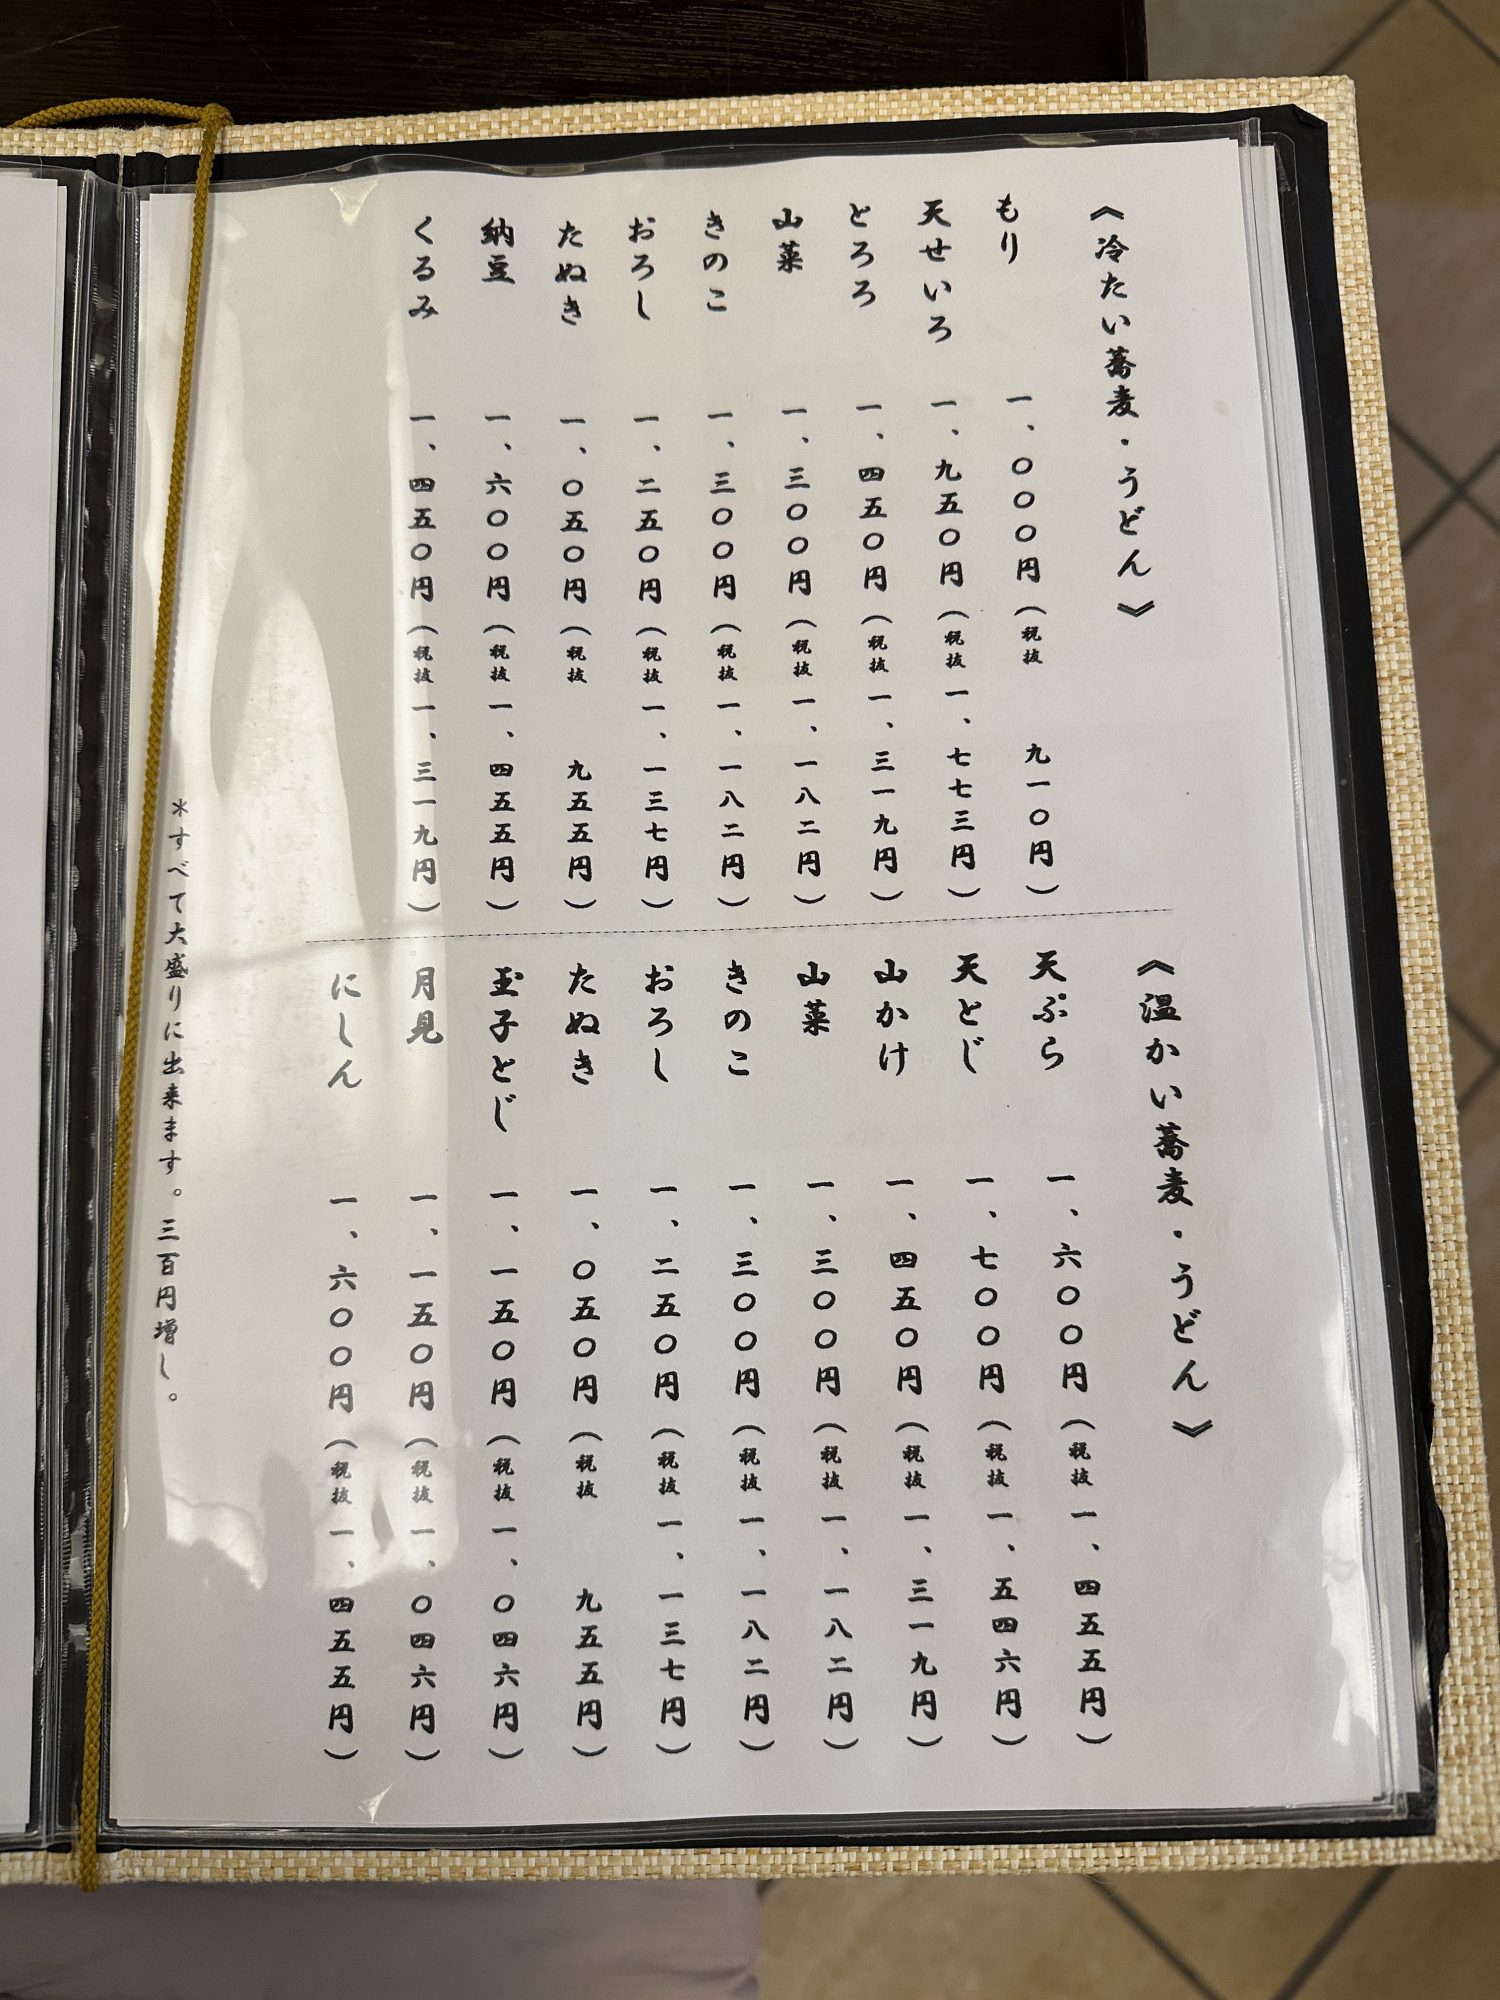 《冷たい蕎麦・うどん》
もり 一、〇〇〇円(税抜 九一〇円)
天せいろ 一、九五〇円(税抜 一、七七三円)
とろろ 一、四五〇円(税抜 一、三一九円)
山菜 一、三〇〇円(税抜 一、一八二円)
きのこ 一、三〇〇円(税抜 一、一八二円)
おろし 一、二五〇円(税抜 一、一三七円)
たぬき 一、〇五〇円(税抜 九五五円)
納豆 一、六〇〇円(税抜 一、四五五円)
くるみ 一、四五〇円(税抜 一、三一九円)
《温かい蕎麦・うどん》
天ぷら 一、六〇〇円(税抜 一、四五五円)
天とじ 一、七〇〇円(税抜 一、五四六円)
山かけ 一、四五〇円(税抜 一、三一九円)
山菜 一、三〇〇円(税抜 一、一八二円)
きのこ 一、三〇〇円(税抜 一、一八二円)
おろし 一、二五〇円(税抜 一、一三七円)
たぬき 一、〇五〇円(税抜 九五五円)
玉子とじ 一、一五〇円(税抜 一、〇四六円)
月見 一、一五〇円(税抜 一、〇四六円)
にしん 一、六〇〇円(税抜 一、四五五円)
*すべて大盛りに出来ます。三百円増し。